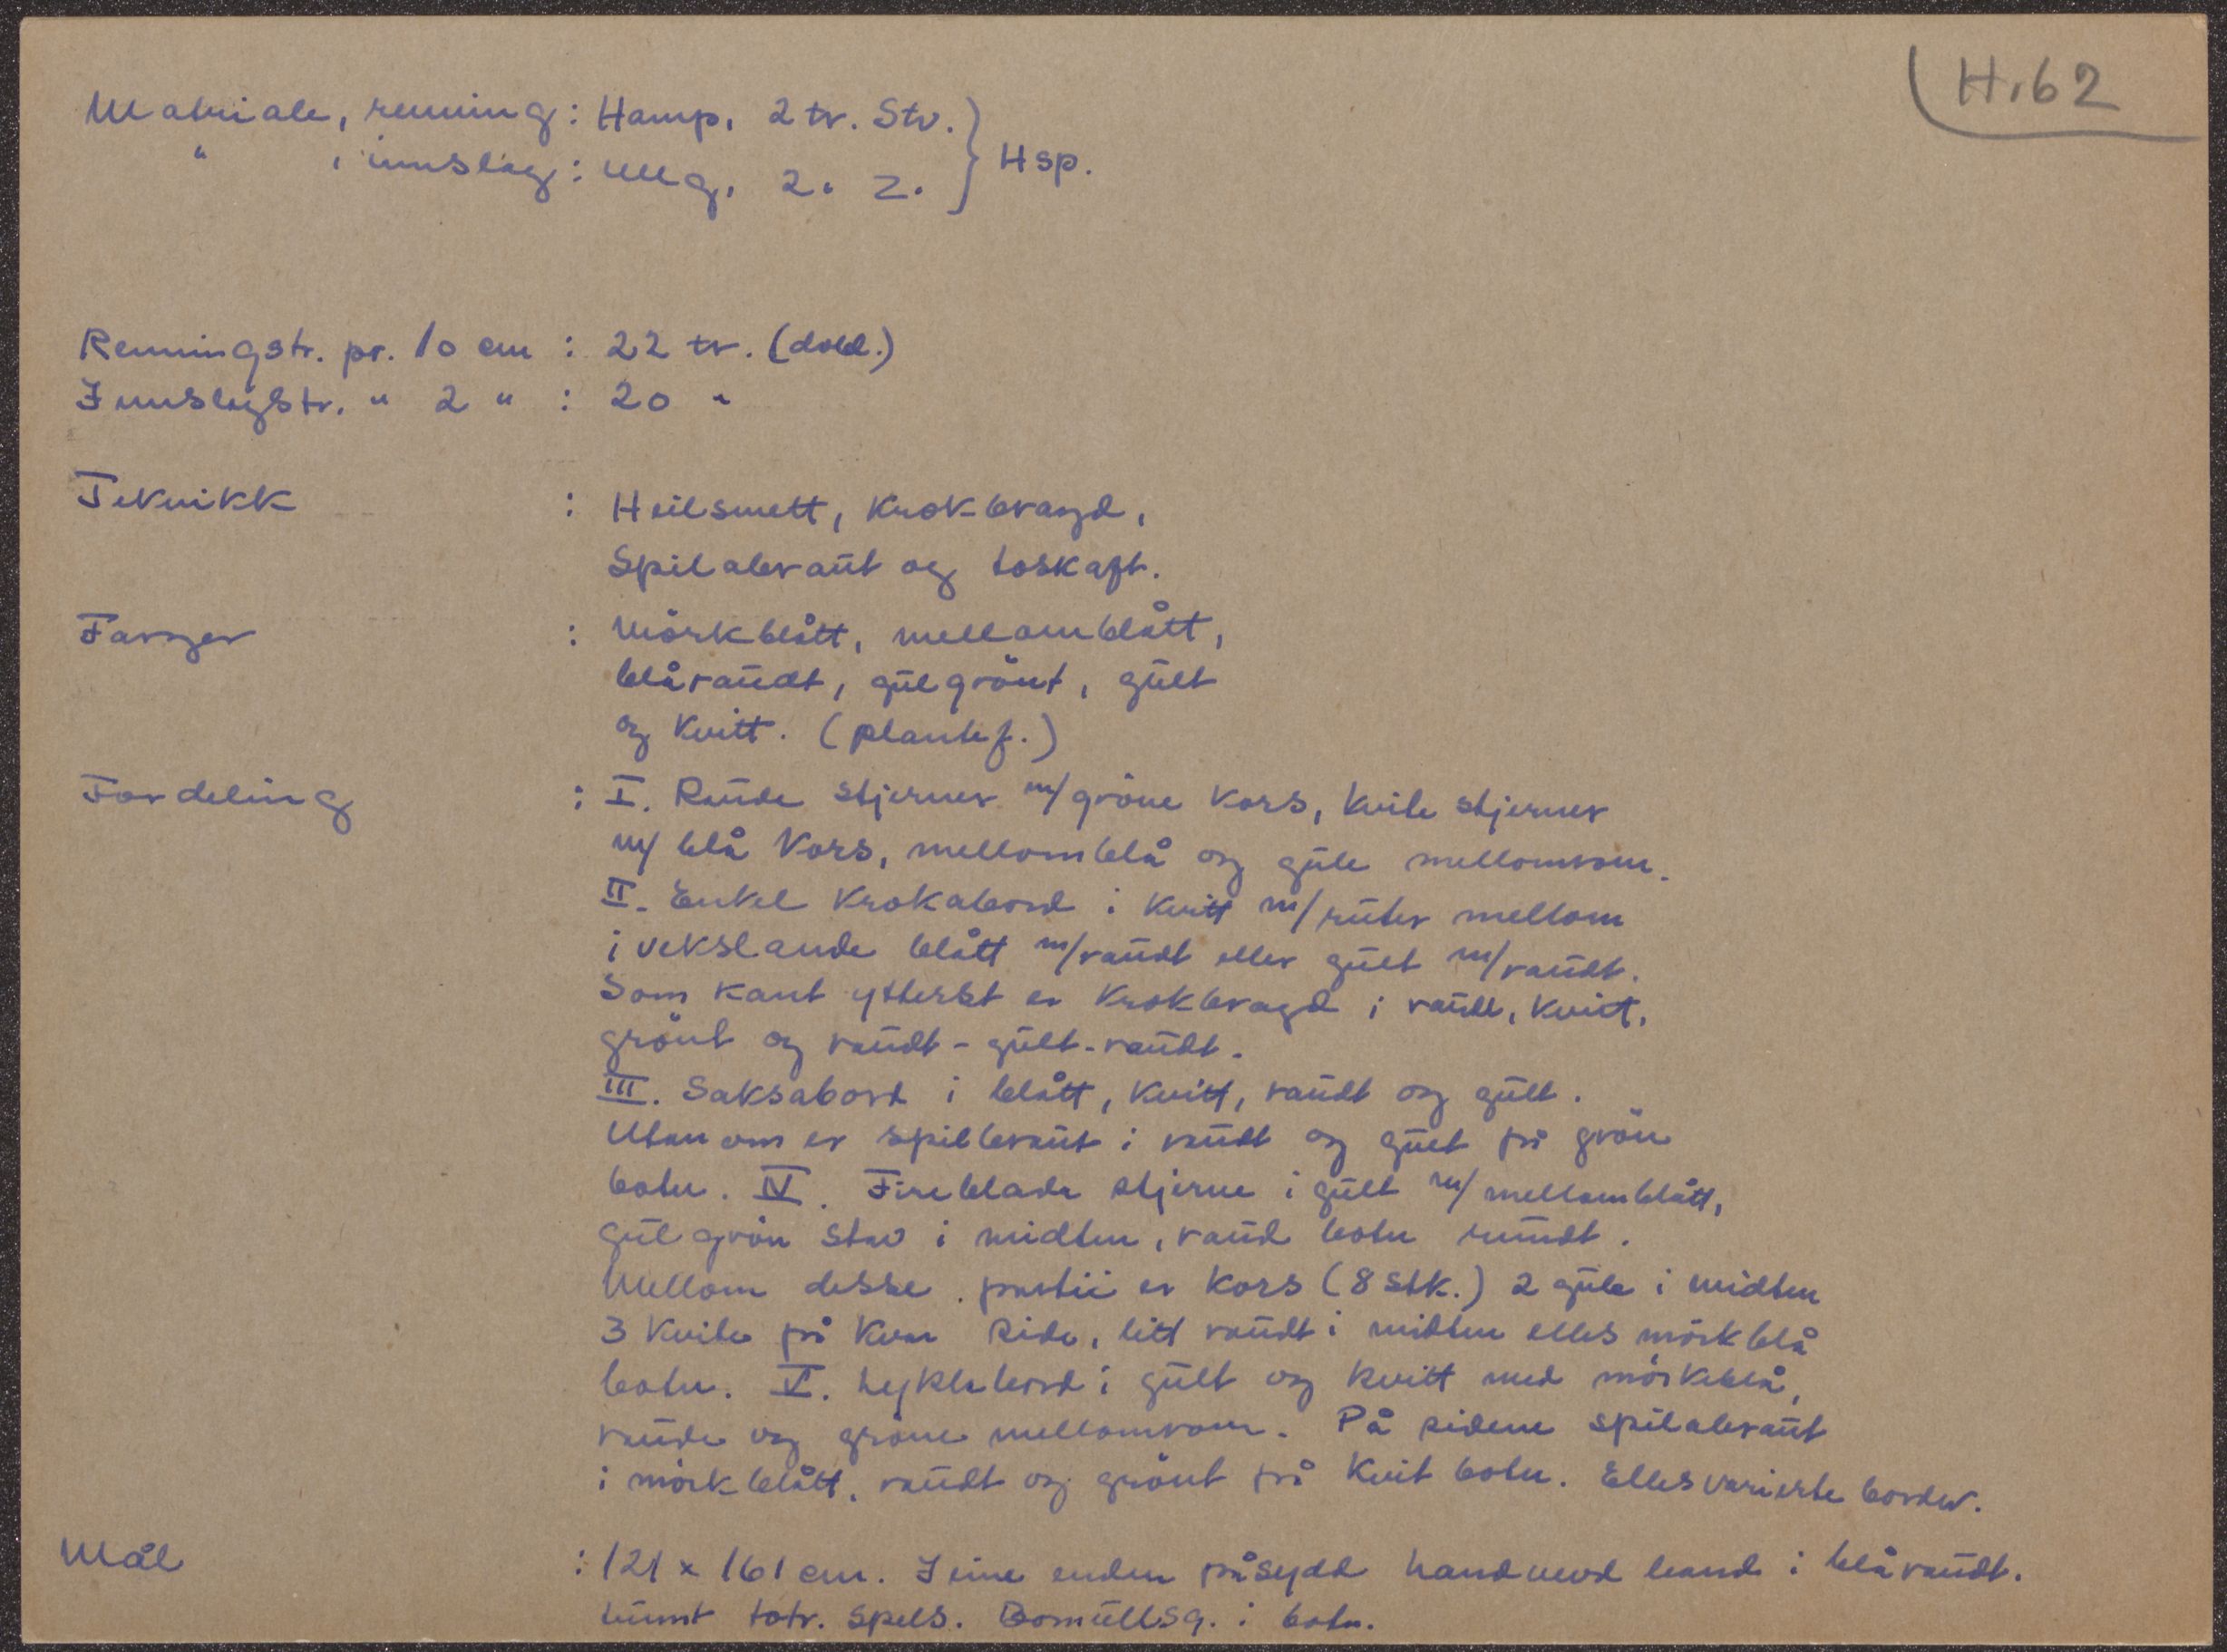 H.62
Matriale, renning: Hamp, 2 tr. Stv. } Hsp.
" , innslag: Ullg, 2. Z.
Renningstr. pr. 10 cm : 22 tr. (dobl.)
Innslagstr. " 2 " : 20 "
Teknikk : Heilsmett, Krokbragd,
Spilabraut og toskaft.
Farger : Mörkblått, mellomblått,
blåraudt, gulgrönt, gult
og kvitt. (plantef.)
Fordeling : I. Raude stjerner m/gröne kors, kvite stjerner
m/ blå kors, mellomblå og gule mellomrom.
II. Enkel Krokabord i kvitt m/ruter mellom
i vekslande blått m/raudt eller gult m/raudt.
Som kant ytterst er Krokbragd i raudt, kvitt,
grönt og raudt-gult-raudt.
III. Saksabord i blått, kvitt, raudt og gult.
Utanom er spilbraut i raudt og gult på grön
botn. IV. Fireblada stjerne i gult m/ mellomblått,
gulgrön stav i midten, raud botn rundt.
Mellom desse partii er kors (8 stk.) 2 gule i midten
3 kvite på kvar side, litt raudt i midten elles mörkblå
botn. V. Lyklebord i gult og kvitt med mörkeblå,
raude og gröne mellomrom. På sidene spilabraut
i mörkblått, raudt og grönt på kvit botn. Elles varierte border.
Mål : 121 x 161 cm. I eine enden påsydd handvevd band i blåraudt.
tunnt totr. spels. Bomullsg. i botn.